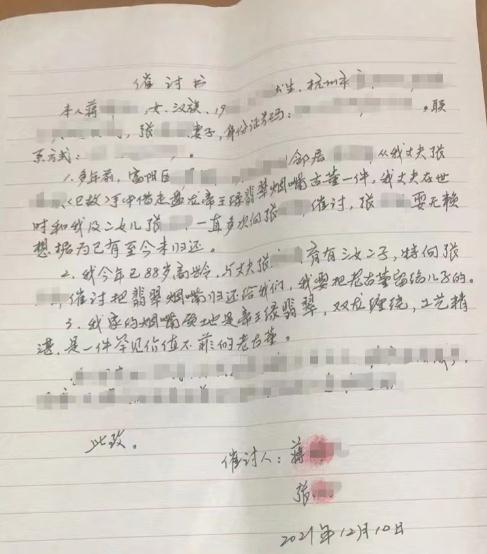 催讨书
本人蒋 ,女,汉族,19 出生,杭州市
,张 妻子,身份证号码: 。联
系方式:
1.多年前,富阳区 邻居 ,从我丈夫张
(已故)手中借走盘龙帝王绿翡翠烟嘴古董一件,我丈夫在世
时和我及二女儿张 一直多次向张 催讨,张 耍无赖
想据为己有至今未归还。
2.我今年已88岁高龄,与丈夫张 育有三女二子,特向张
催讨把翡翠烟嘴归还给我们,我要把老古董留给儿子的。
3.我家的烟嘴质地是帝王绿翡翠,双龙缠绕,工艺精
湛,是一件罕见价值不菲的老古董。
此致。
催讨人:蒋
张
2021年12月10日